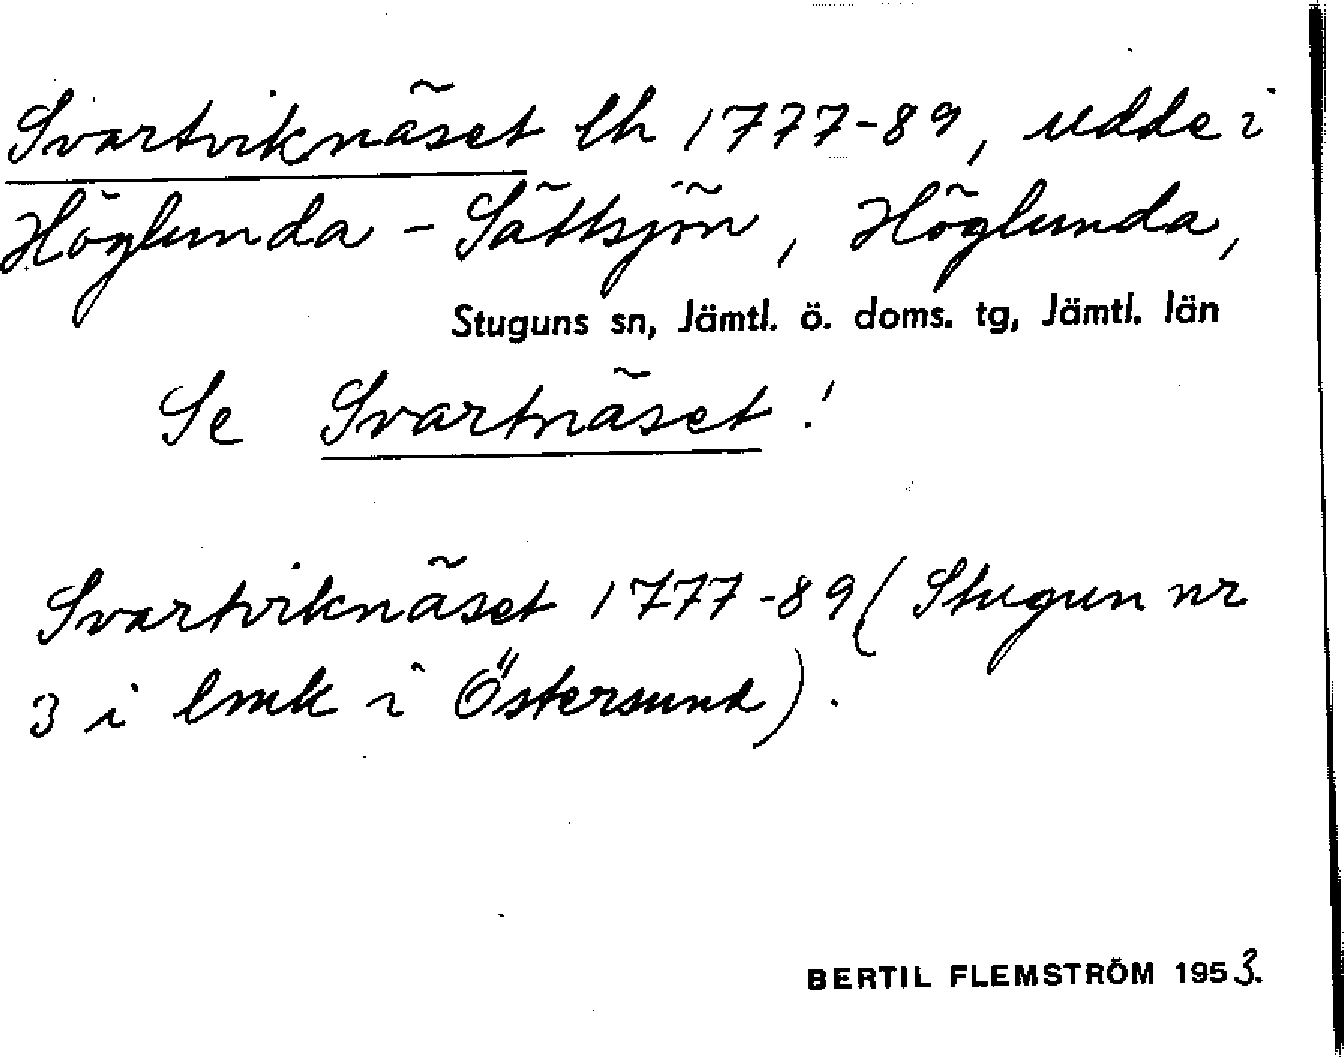 Svartviknäset lh 1777-89, udde i
Höglunda - Sättsjön, Höglunda,
Stuguns sn, Jämtl. ö. doms. tg, Jämtl. län
Se Svartnäset!
Svartviknäset 1777-89 (Stugun nr
3 i lmk i Östersund).
BERTIL FLEMSTRÖM 1953.